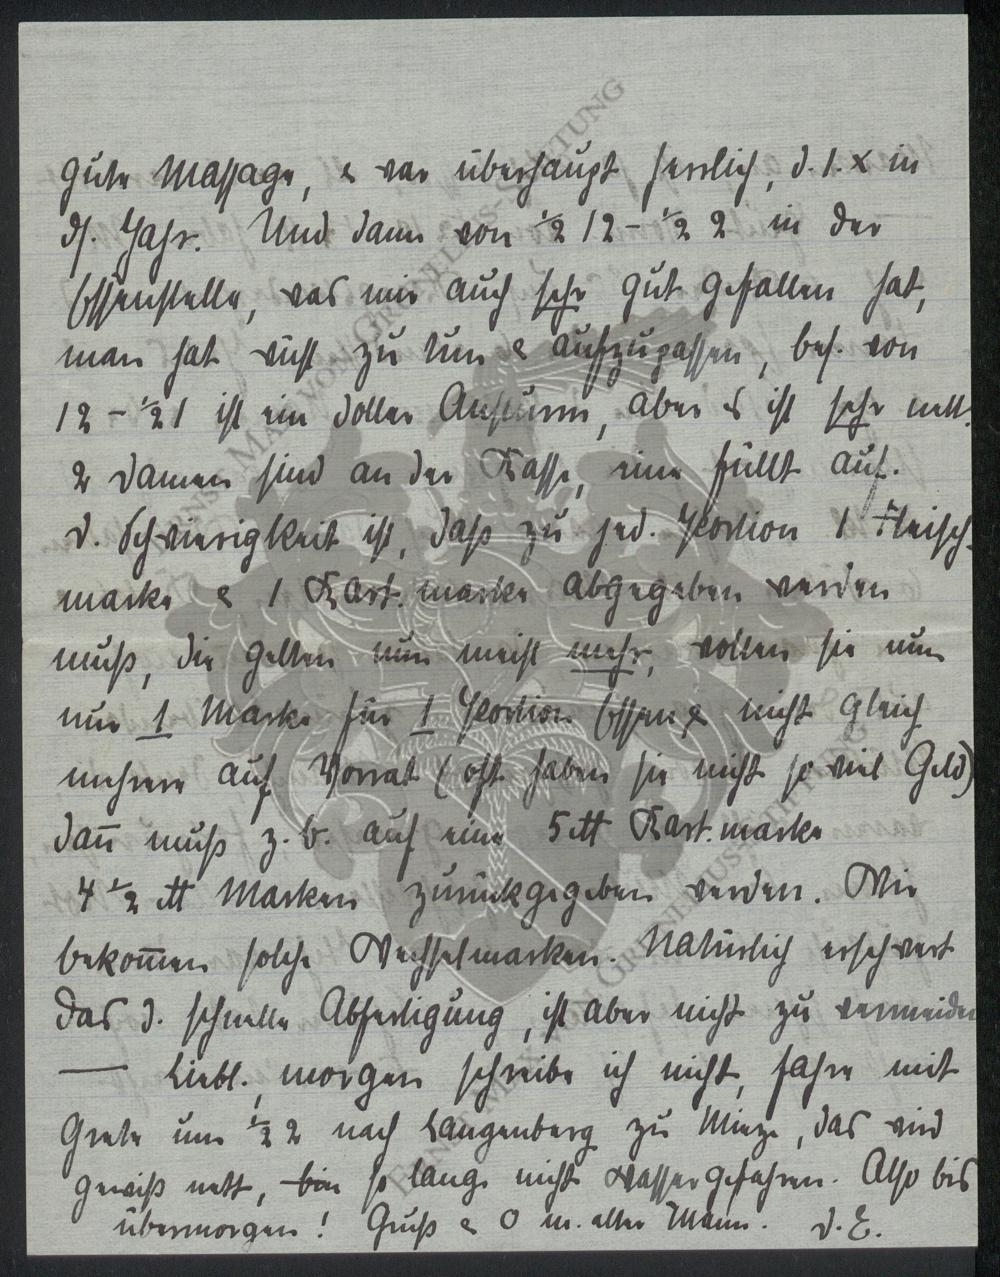 gute Massage, & war überhaupt herrlich, d. 1. x in
ds. Jahr. Und dann von ½ 12 – ½ 2 in der
Essenstelle, was mir auch sehr gut gefallen hat,
man hat viel zu tun & aufzupassen, bes. von
12 – ½ 1 ist ein doller Ansturm, aber es ist sehr nett.
2 Damen sind an der Kasse, eine füllt auf.
D. Schwierigkeit ist, daß zu jed. Portion 1 Fleisch-
marke & 1 Kart. marke abgegeben werden
muß, die gelten nun meist mehr, wollen sie nun
nur 1 Marke für 1 Portion Essen & nicht gleich
mehrere auf Vorrat (oft haben sie nicht so viel Geld)
dann muß z. b. auf eine 5 ℔ Kart. marke
4 ½ ℔ Marken zurückgegeben werden. Wir
bekom̅en solche Wechselmarken. Natürlich erschwert
das d. schnelle Abfertigung, ist aber nicht zu vermeiden
— Liebl., morgen schreibe ich nicht, fahre mit
Grete um ½ 2 nach Langenberg zu Mieze, das wird
gewiß nett, bin so lange nicht gefahren. Also bis
übermorgen! Gruß & O m. alter Mann. D. E.
Ernst Max von Grunelius-Stiftung
Ernst Max von Grunelius-Stiftung